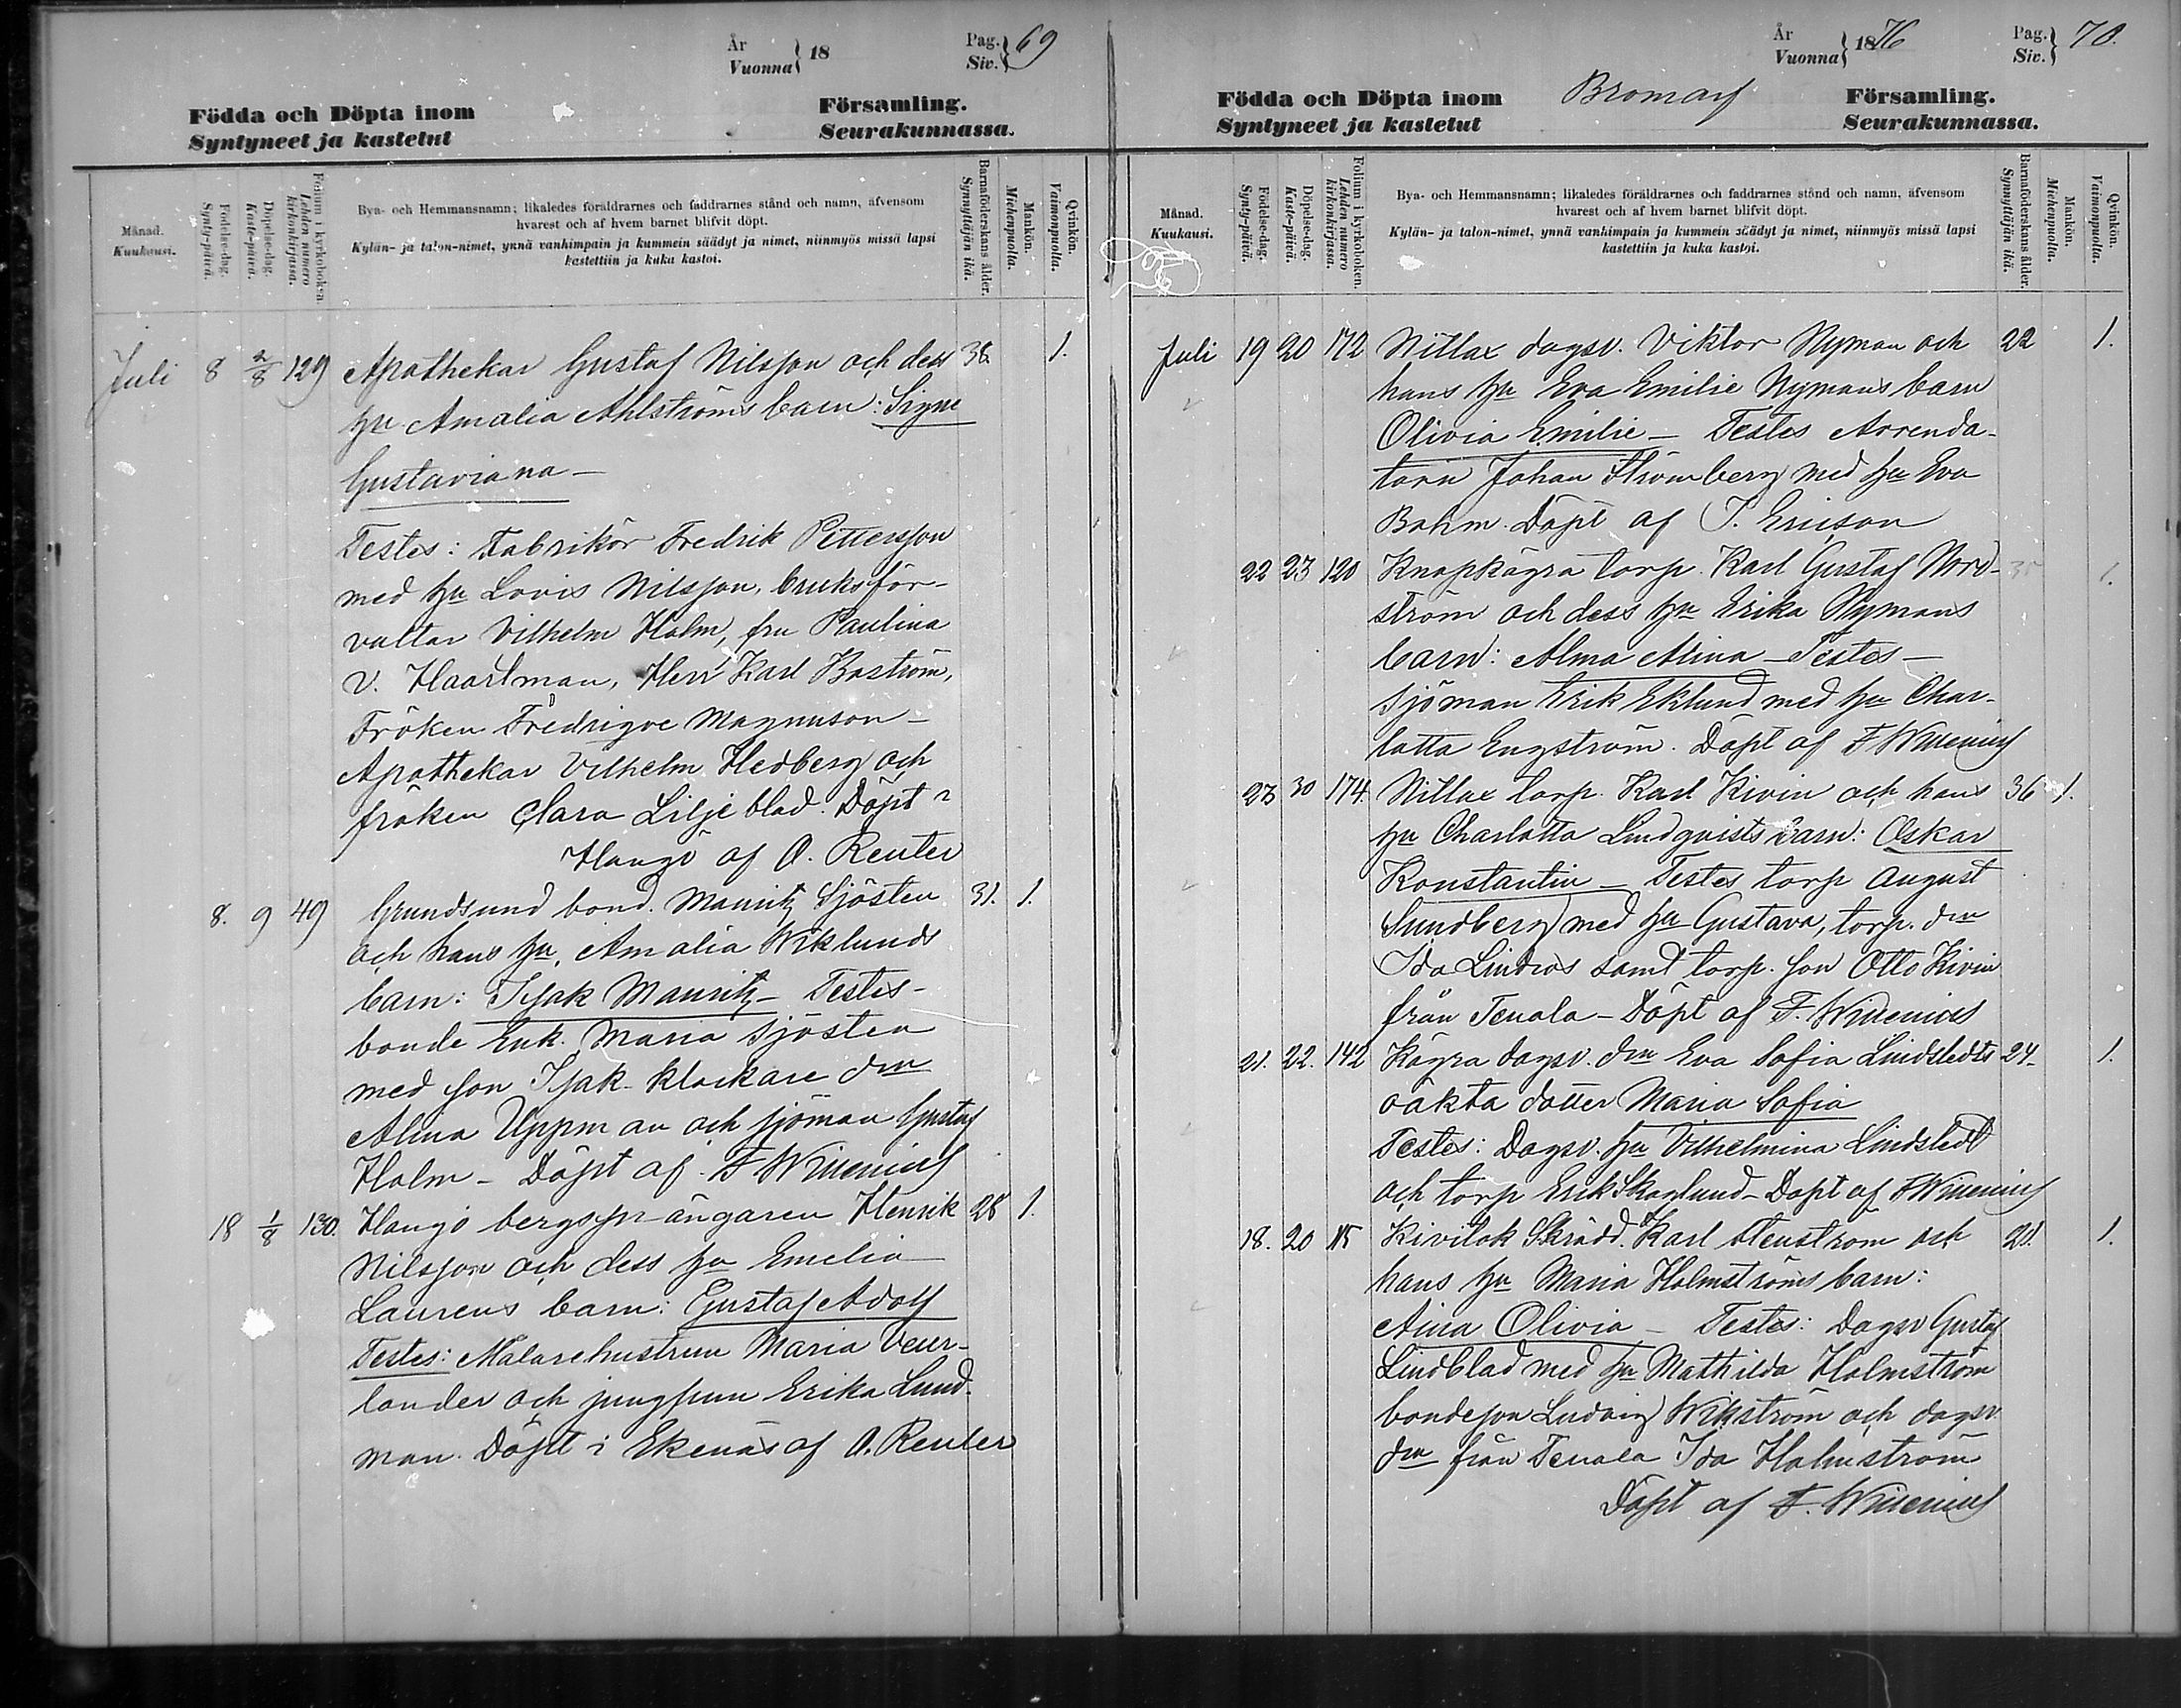 År
Vuonna } 18
Pag.
Siv. } 69
Födda och Döpta inom
Syntyneet ja kastetut
Församling.
Seurakunnassa.
Månad.
Kuukausi.
Födelse-dag.
Synty-päivä.
Döpelse-dag.
Kaste-päivä.
Folium i kyrkoboken.
Lehden numero
kirkonkirjassa.
Bya- och Hemmansnamn; likaledes föräldrarnes och faddrarnes stånd och namn, äfvensom
hvarest och af hvem barnet blifvit döpt.
Kylän- ja talon-nimet, ynnä vanhimpain ja kummein säädyt ja nimet, niinmyös missä lapsi
kastettiin ja kuka kastoi.
Barnaföderskans ålder.
Synnyttäjän ikä.
Mankön.
Miehenpuolta.
Qvinkön.
Vaimonpuolta.
Juli 8 2/8 129 Apothekar Gustaf Nilsson och dess 36 1.
hu Amalia Ahlströms barn: Signe
Gustaviana —
Testes: Fabrikör Fredrik Pettersson
med hu Lovis Nilsson, bruksför-
valtar Vilhelm Holm, fru Paulina
v. Haartman, Herr Karl Boström,
Fröken Fredrigve Magnuson —
Apothekar Vilhelm Hedberg och
fröken Clara Liljeblad. Döpt i
Hangö af O. Reuter
8. 9 49 Grundsund bond. Mauritz Sjösten 31. 1.
och hans hu, Amalia Wiklunds
barn: Isak Mauritz — Testes —
bonde Enk. Maria Sjösten
med son Isak — klockare drn
Alina Uppman och sjöman Gustaf
Holm — Döpt af F Willenius
18 1/8 130. Hangö bergsprängaren Henrik 28 1.
Nilsson och dess hu Emelia
Laurens barn: Gustaf Adolf
Testes: Målarehustrun Maria Veur-
lander och jungfrun Erika Lund-
man. Döpt i Ekenäs af O. Reuter
År
Vuonna } 1876
Pag.
Siv. } 70.
Födda och Döpta inom Bromarf Församling.
Syntyneet ja kastetut Seurakunnassa.
Månad.
Kuukausi.
Födelse-dag.
Synty-päivä.
Döpelse-dag.
Kaste-päivä.
Folium i kyrkoboken.
Lehden numero
kirkonkirjassa.
Bya- och Hemmansnamn; likaledes föräldrarnes och faddrarnes stånd och namn, äfvensom
hvarest och af hvem barnet blifvit döpt.
Kylän- ja talon-nimet, ynnä vanhimpain ja kummein säädyt ja nimet, niinmyös missä lapsi
kastettiin ja kuka kastoi.
Barnaföderskans ålder.
Synnyttäjän ikä.
Mankön.
Miehenpuolta.
Qvinkön.
Vaimonpuolta.
Juli 19 20 172 Nitlax dagsv. Viktor Nyman och 22 1.
hans hu Eva Emilie Nymans barn
Olivia Emilie — Testes Arrenda-
torn Johan Strömberg med hu Eva
Bohm. Döpt af J. Ericson
22 23 120 Knapkägra torp. Karl Gustaf Nord- 35 1.
ström och dess hu Erika Nymans
barn: Alma Alina — Testes —
sjöman Erik Eklund med hu Char-
lotta Engström. Döpt af F Willenius
23 30 174. Nitlax torp. Karl Kivin och hans 36 1.
hu Charlotta Lindqvists barn: Oskar
Konstantin — Testes torp August
Sundberg med hu Gustava, torp. drn
Ida Lindros samt torp. son Otto Kivin
från Tenala — Döpt af F. Willenius
21. 22. 142 Kägra dagsv. drn Eva Sofia Lindstedts 24 1.
oäkta dotter Maria Sofia
Testes: Dagsv. hu Vilhelmina Lindstedt
och torp Erik Skoglund — Döpt af F Willenius
18. 20 115 Kivitok Skrädd. Karl Stenström och 20. 1.
hans hu Maria Holmströms barn:
Aina Olivia — Testes: Dagsv Gustaf
Lindblad med hu Mathilda Holmström
bondeson Ludvig Wikström och dagsv
drn från Tenala Ida Holmström
Döpt af F. Willenius